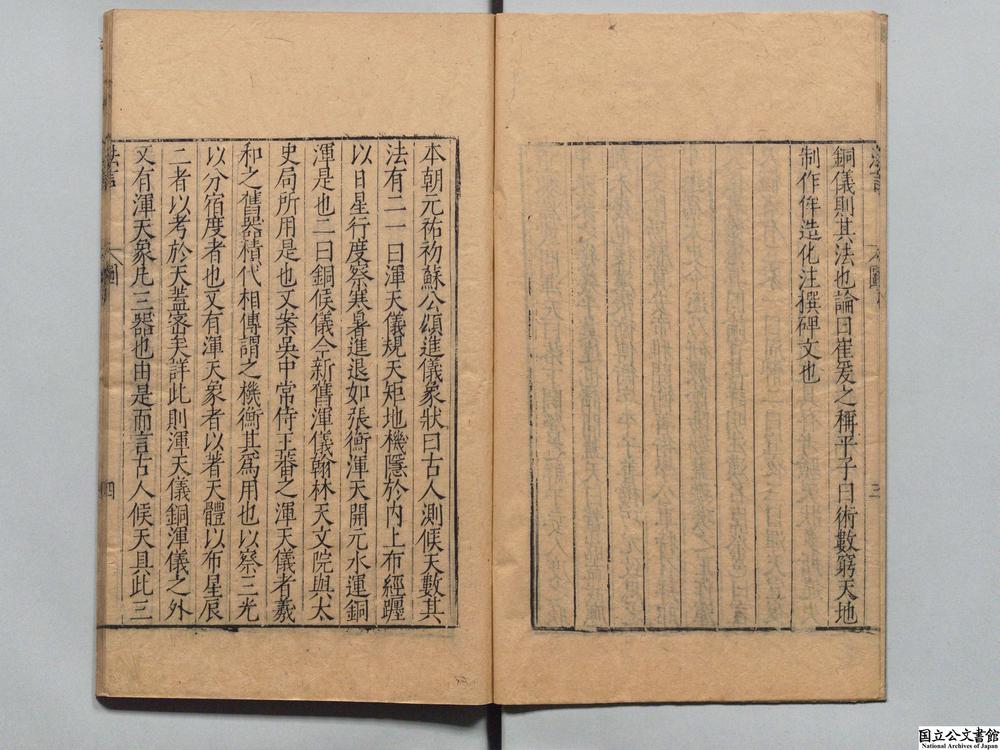 銅儀則其法也論曰崔爰之稱平子曰術數窮天地
制作侔造化注撰碑文也
法言
圖
三
本朝元祐初蘇公頌進儀象狀曰古人測候天數其
法有二一曰渾天儀規天矩地機隱於内上布經躔
以日星行度察寒暑進退如張衡渾天開元水運銅
渾是也二曰銅候儀今新舊渾儀翰林天文院與太
史局所用是也又案吳中常侍王蕃之渾天儀者羲
和之舊器積代相傳謂之機衡其爲用也以察三光
以分宿度者也又有渾天象者以著天體以布星辰
二者以考於天蓋密矣詳此則渾天儀銅渾儀之外
又有渾天象凡三器也由是而言古人候天具此三
法言
圖
四
国立公文書館
National Archives of Japan